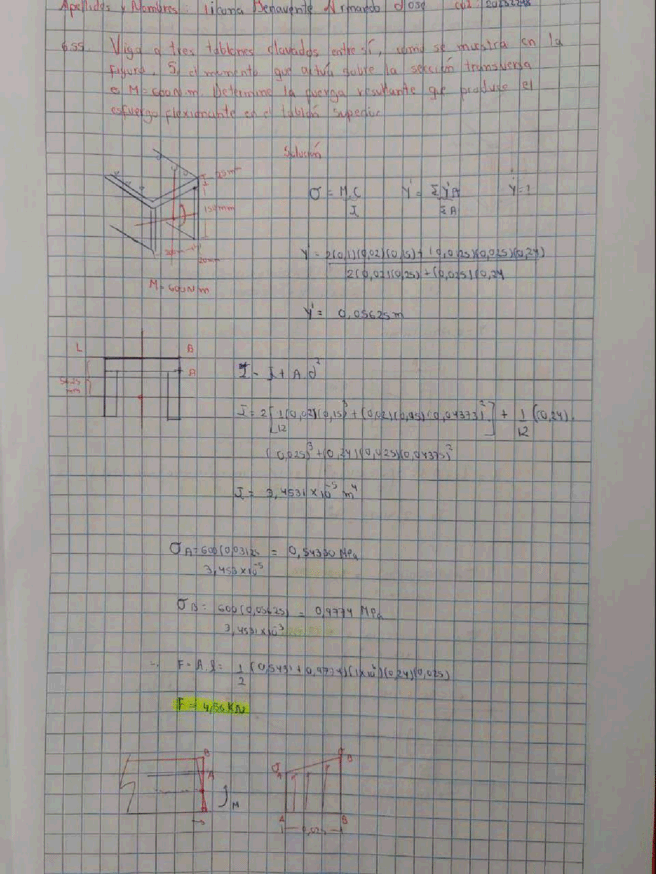 Apellidos y Nombres: Licona Benavente Armando Jose
6.55. Viga a tres tablones clavados entre sí, como se muestra en la
figura. Si el momento que actúa sobre la sección transversa
es M=600 N.m. Determine la fuerza resultante que produce el
esfuerzo flexionante en el tablón superior
Solución
σ = M.C / I
Y' = ΣY'A / ΣA
Y=?
150mm
20mm
M=600N/m
Y' = 2(0,1)(0,02)(0,15)+(0,0125)(0,025)(0,24)
2(0,02)(0,25)+(0,025)(0,24
Y' = 0,05625m
L B
A
mm
I = I + A d²
I = 2[1/12(0,02)(0,15)³ + (0,02)(0,15)(0,04375)²] + 1/12 (0,24).
(0,025)³+(0,24)(0,025)(0,0437)²
I = 3,4531 x10⁻⁵ m⁴
σA = 600(0,03125 = 0,54330 MPa
3,453 x10⁻⁵
σB = 600(0,05625) = 0,9774 MPa
3,4531x10⁻⁵
F = 1/2 (0,5431+0,9774)(1x10⁶)(0,24)(0,025)
F = 4,56 KN
B
A
M
σA σB
A B